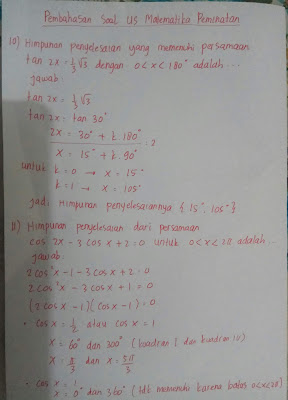 Pembahasan Soal US Matematika Peminatan
10) Himpunan penyelesaian yang memenuhi persamaan
tan 2x = 1/3 √3 dengan 0 < x < 180° adalah ...
jawab:
tan 2x = 1/3 √3
tan 2x = tan 30°
2x = 30° + k. 180°
: 2
x = 15° + k. 90°
untuk k = 0 → x = 15°
k = 1 → x = 105°
jadi Himpunan penyelesaiannya { 15°, 105° }
11) Himpunan penyelesaian dari persamaan
cos 2x - 3 cos x + 2 = 0 untuk 0 < x < 2π adalah ...
jawab:
2 cos²x - 1 - 3 cos x + 2 = 0
2 cos²x - 3 cos x + 1 = 0
(2 cos x - 1)(cos x - 1) = 0
• cos x = 1/2 atau cos x = 1
x = 60° dan 300° (kuadran I dan kuadran IV)
x = π/3 dan x = 5π/3
• cos x = 1
x = 0° dan 360° (tdk memenuhi karena batas 0<x<2π)